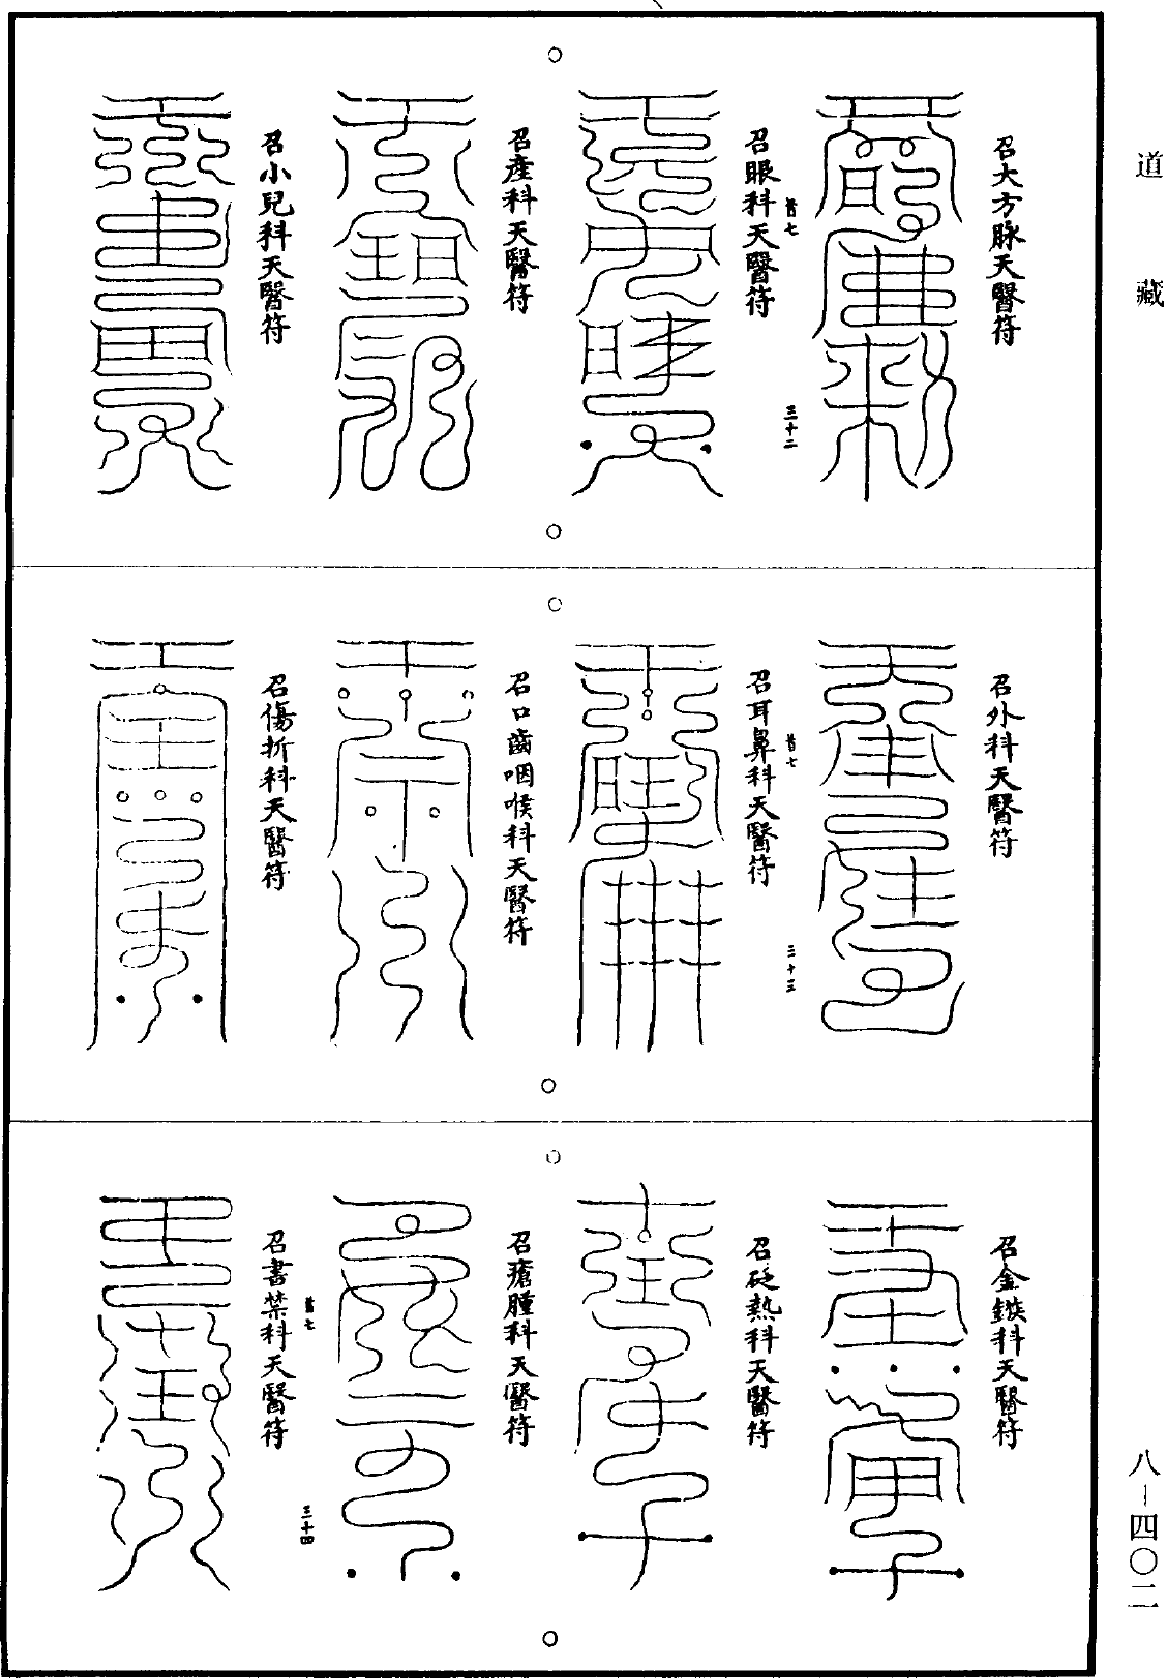 道藏
召大方脉天醫符
召眼科天醫符
召產科天醫符
召小兒科天醫符
三十二
召外科天醫符
召耳鼻科天醫符
召口齒咽喉科天醫符
召傷折科天醫符
三十三
召金鏃科天醫符
召砭熱科天醫符
召瘡腫科天醫符
召書禁科天醫符
三十四
八－四〇二